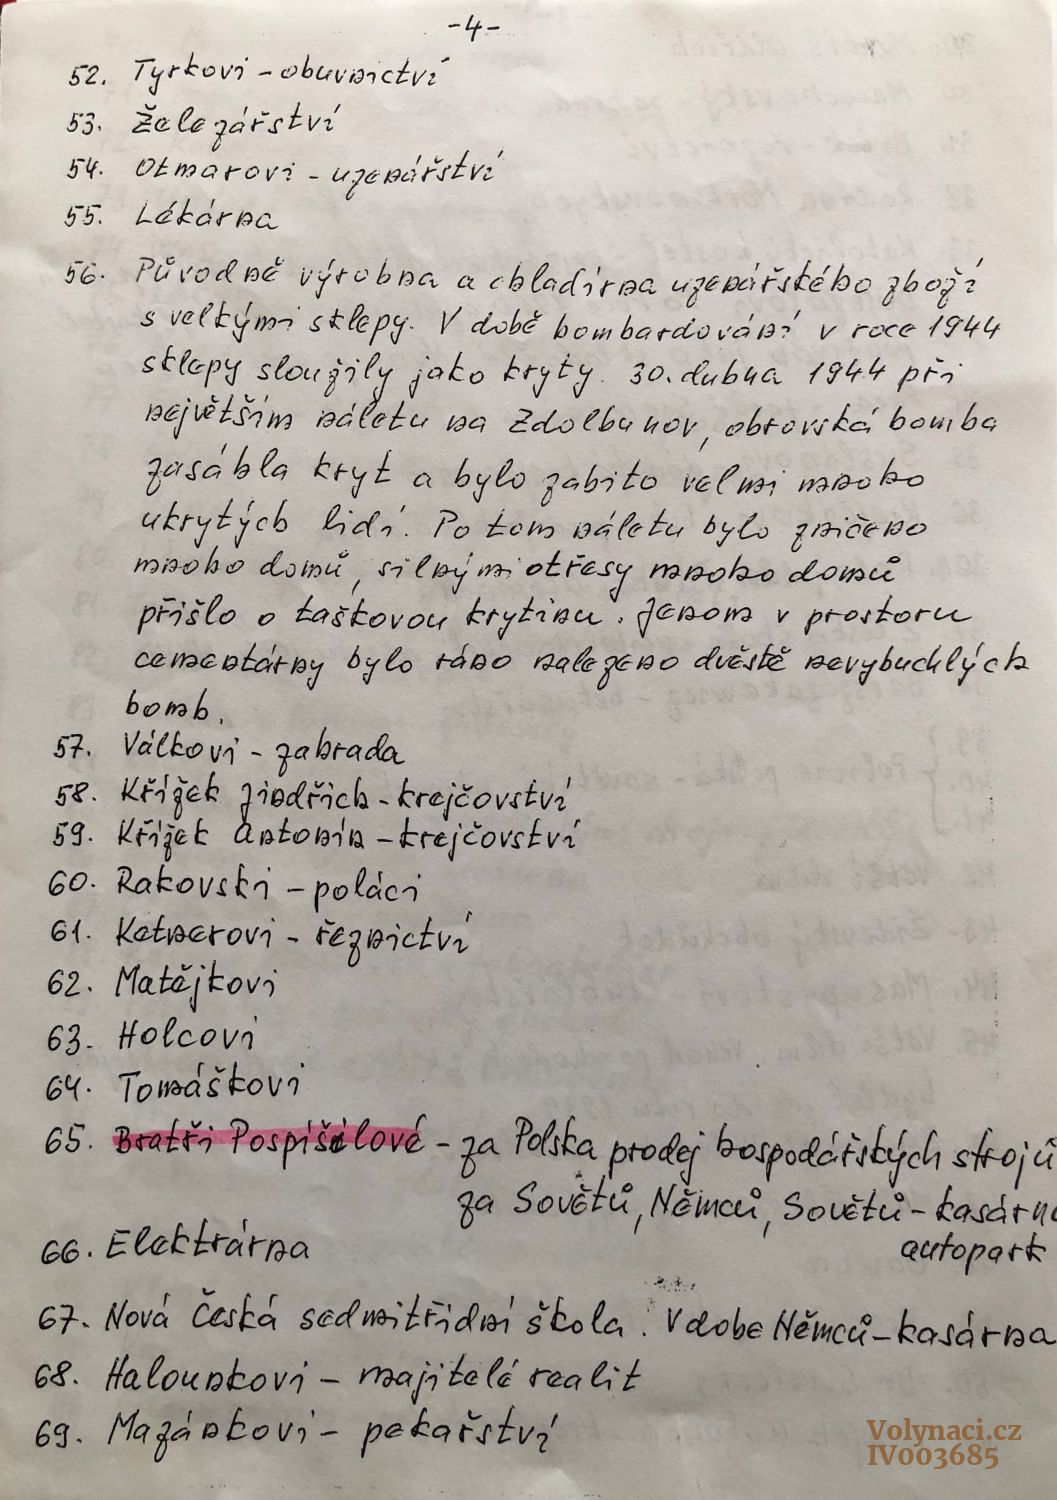 -4-
52. Tyrkovi - obuvnictví
53. Železářství
54. Otmarovi - uzenářství
55. Lékárna
56. Původně výrobna a chladírna uzenářského zboží
s velkými sklepy. V době bombardování v roce 1944
sklepy sloužily jako kryty. 30. dubna 1944 při
největším náletu na Zdolbunov, obrovská bomba
zasáhla kryt a bylo zabito velmi mnoho
ukrytých lidí. Po tom náletu bylo zničeno
mnoho domů, silnými otřesy mnoho domů
přišlo o taškovou krytinu. Jenom v prostoru
cementárny bylo ráno nalezeno dvěstě nevybuchlých
bomb.
57. Válkovi - zahrada
58. Křížek Jindřich - krejčovství
59. Křížek Antonín - krejčovství
60. Rakovski - poláci
61. Ketnerovi - řeznictví
62. Matějkovi
63. Holcovi
64. Tomáškovi
65. Bratři Pospíšilové - za Polska prodej hospodářských strojů
za Sovětů, Němců, Sovětů - kasárna
autopark
66. Elektrárna
67. Nová Česká sedmitřídní škola. V dobe Němců - kasárna
68. Halounkovi - majitelé realit
69. Mazánkovi - pekařství
Volynaci.cz
IV003685